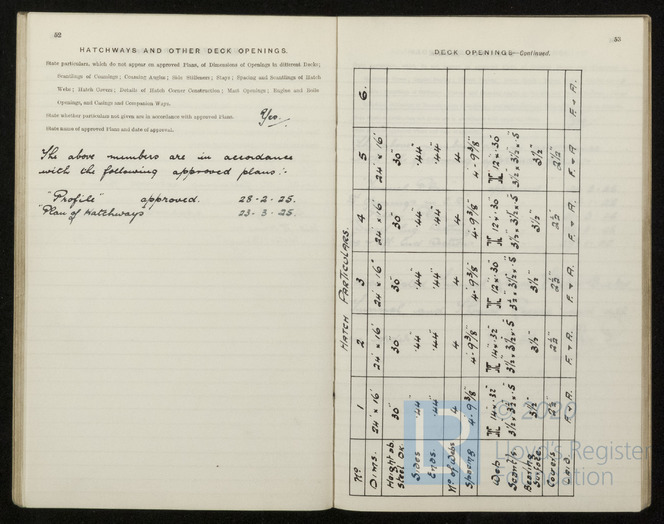 52
HATCHWAYS AND OTHER DECK OPENINGS.
State particulars, which do not appear on approved Plans, of Dimensions of Openings in different Decks;
Scantlings of Coamings; Coaming Angles; Side Stiffeners; Stays; Spacing and Scantlings of Hatch
Webs; Hatch Covers; Details of Hatch Corner Construction; Mast Openings; Engine and Boiler
Openings, and Casings and Companion Ways.
State whether particulars not given are in accordance with approved Plans. Yes.
State names of approved Plans and date of approval.
The above members are in accordance
with the following approved plans:-
"Profile" approved. 28-2-25.
"Plan of Hatchways" 23-3-25.
53
DECK OPENINGS—Continued.
HATCH PARTICULARS.
No. 1 2 3 4 5 6.
Dims. 24' × 16' 24' × 16' 24' × 16' 24' × 16' 24' × 16'
Height ab. Steel Dk. 30" 30" 30" 30" 30"
Sides .44" .44" .44" .44" .44"
Ends. .44" .44" .44" .44" .44"
No of Webs 4 4 4 4 4
Spacing 4'-9⅜" 4'-9⅜" 4'-9⅜" 4'-9⅜" 4'-9⅜"
Web 14 × .32" 14 × .32" 12 × .30" 12 × .30" 12 × .30"
Scant's. 3½ × 3½ × .5 3½ × 3½ × .5 3½ × 3½ × .5 3½ × 3½ × .5 3½ × 3½ × .5
Bearing Surface. 3½" 3½" 3½" 3½" 3½"
Covers. 2½" 2½" 2½" 2½" 2½"
F. & A. F. & A. F. & A. F. & A. F. & A. F. & A.
© 2020
Lloyd's Register
Foundation